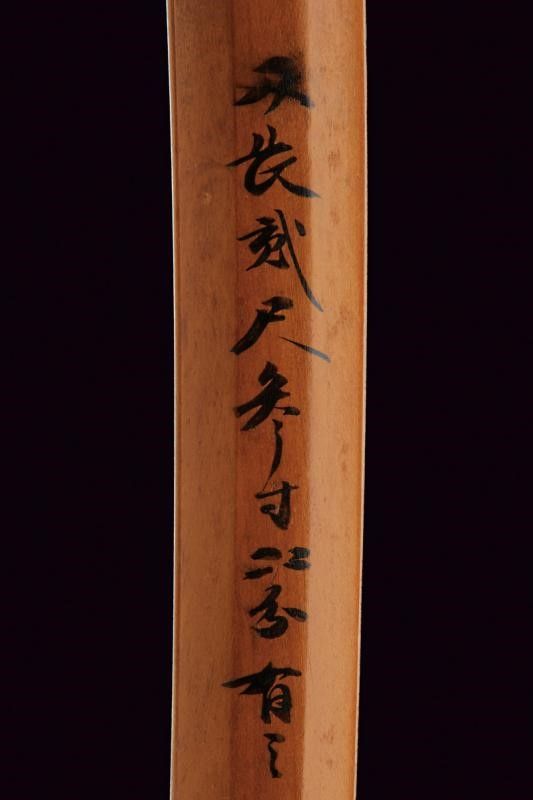 刃長貳尺参寸 分有之